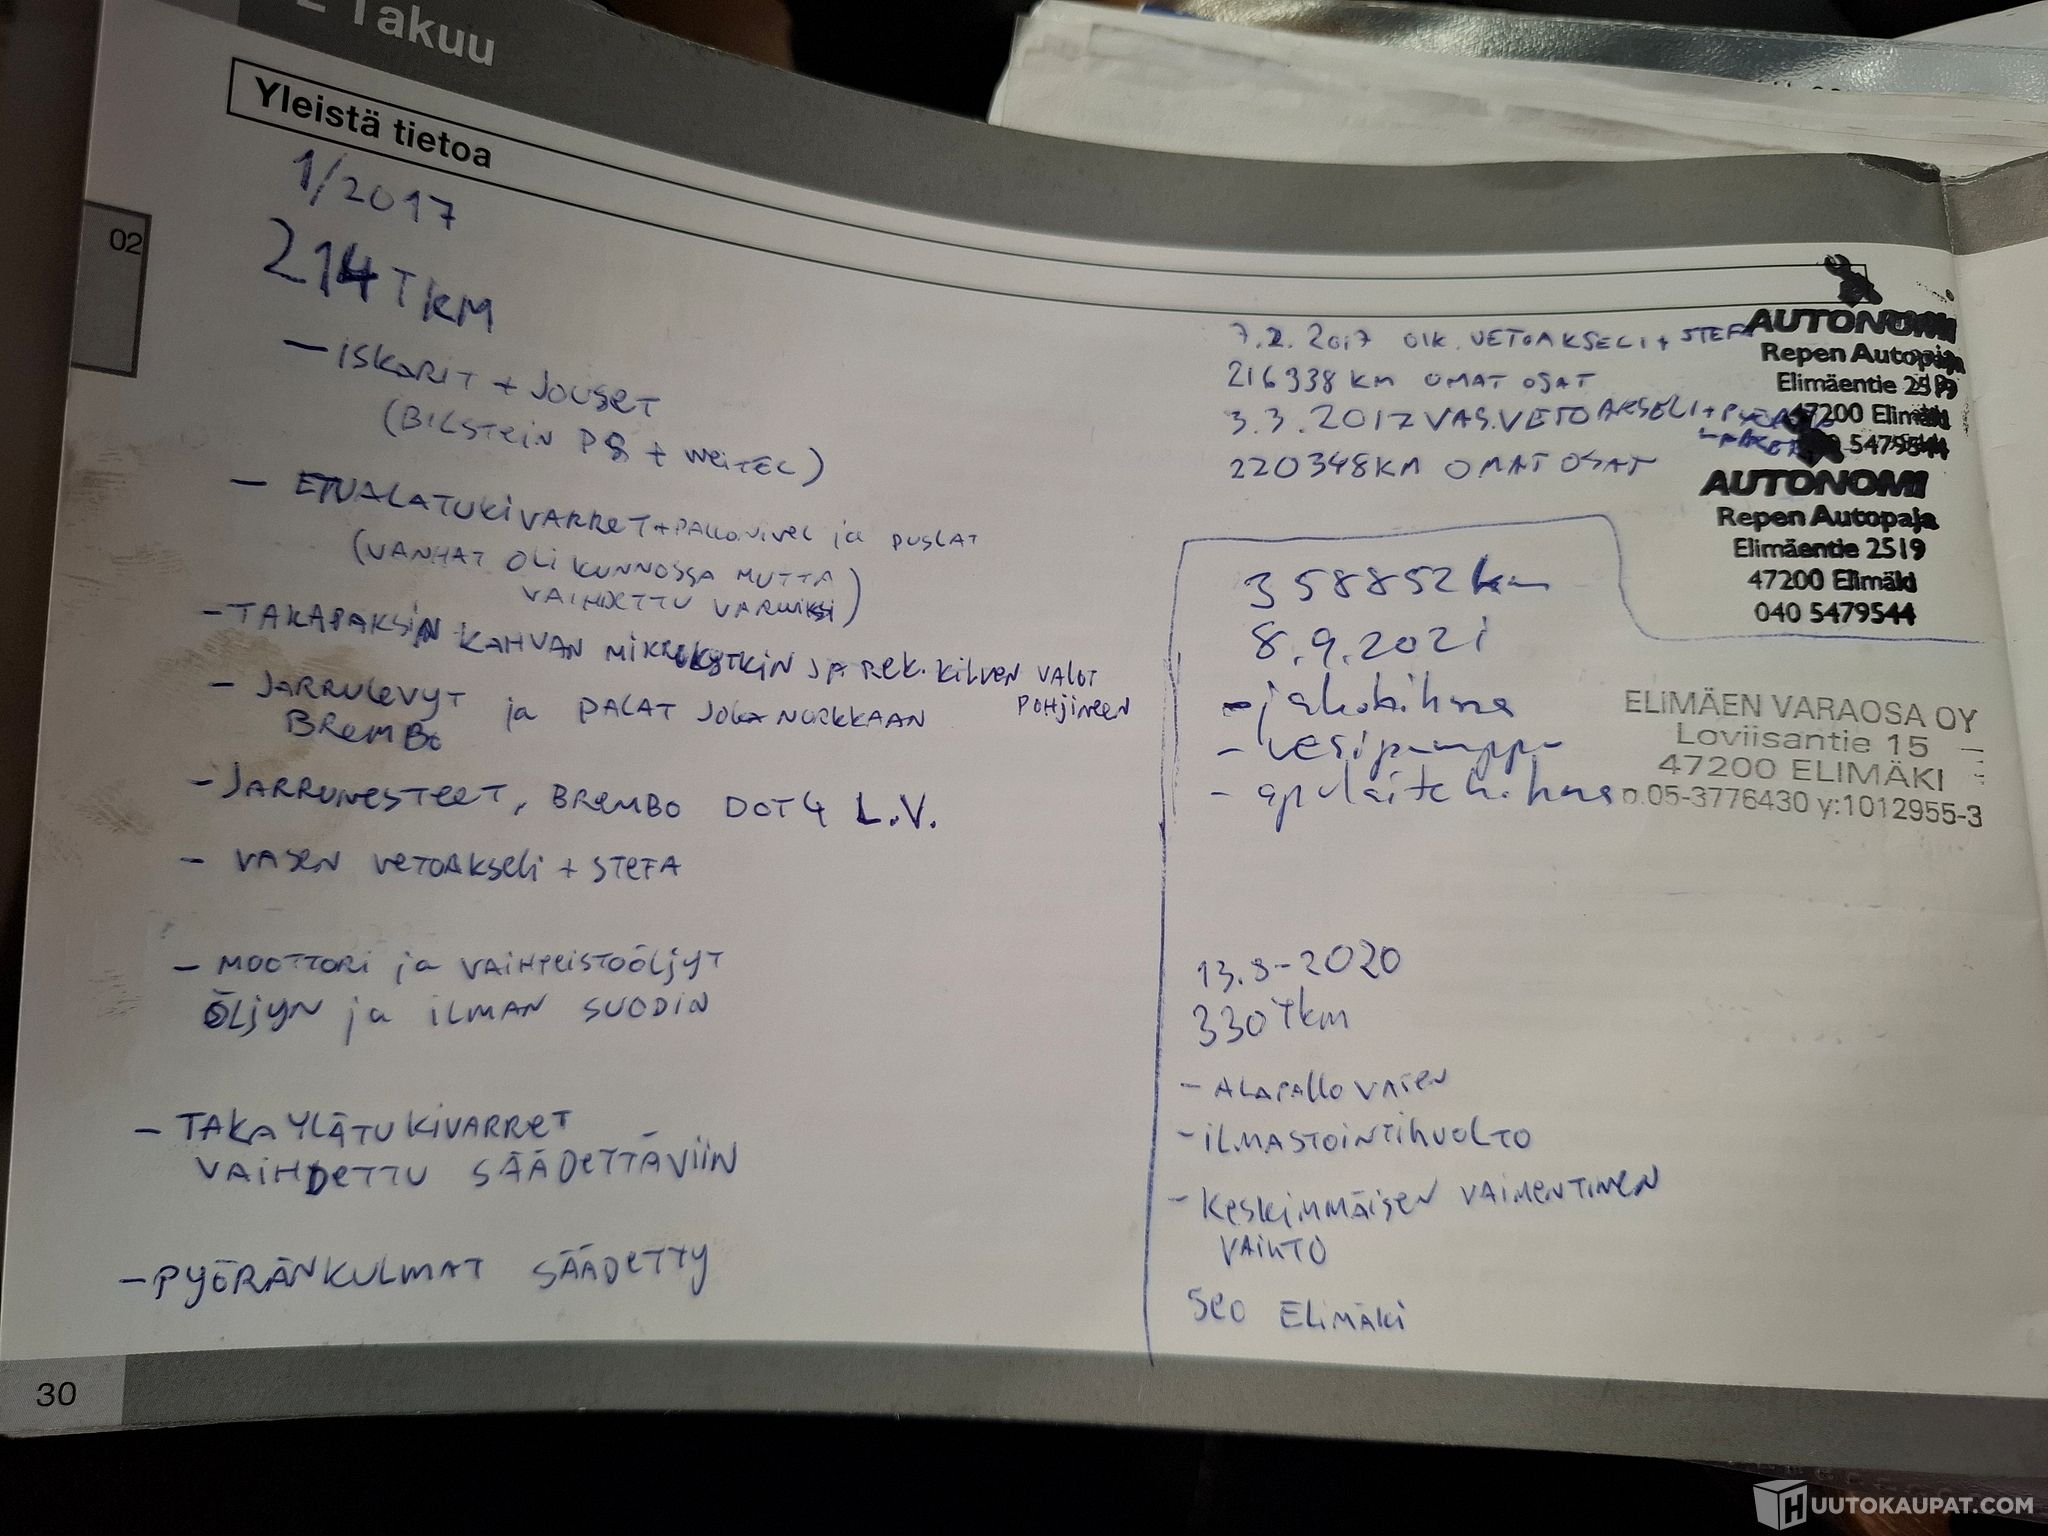 2 Takuu
Yleistä tietoa
02
1/2017
214 TKM
- iSKARIT + JOUSET
(BILSTEIN P8 + WEITEC)
- ETUALATUKIVARRET + PALLONIVEL ja PUSLAT
(VANHAT OLI KUNNOSSA MUTTA
VAIHDETTU VARUIKSI)
- TAKAPAKSIN KAHVAN MIKROKYTKIN JA REK. KILVEN VALOT
POHJINEEN
- JARRULEVYT ja PALAT JOKA NURKKAAN
BREMBO
- JARRUNESTEET, BREMBO DOT4 L.V.
- VASEN VETOAKSELI + STEFA
- MOOTTORI ja VAIHTEISTOÖLJYT
ÖLJYN ja ILMAN SUODIN
- TAKA YLÄTUKIVARRET
VAIHDETTU SÄÄDETTÄVIIN
- PYÖRÄNKULMAT SÄÄDETTY
30
7.2.2017 OIK. VETOAKSELI + STEFA
216338 KM OMAT OSAT
3.3.2017 VAS. VETOAKSELI +
220348 KM OMAT OSAT
AUTONOMI
Repen Autopaja
Elimäentie 2519
47200 Elimäki
5479544
AUTONOMI
Repen Autopaja
Elimäentie 2519
47200 Elimäki
040 5479544
358852 km
8.9.2021
- jakohihna
- vesipumppu
- apulaitehihna
ELIMÄEN VARAOSA OY
Loviisantie 15
47200 ELIMÄKI
p.05-3776430 y:1012955-3
13.8-2020
330 Tkm
- ALAPALLO VASEN
- ILMASTOINTIHUOLTO
- KESKIMMÄISEN VAIMENTIMEN
VAIHTO
Seo ELIMÄKI
HUUTOKAUPAT.COM